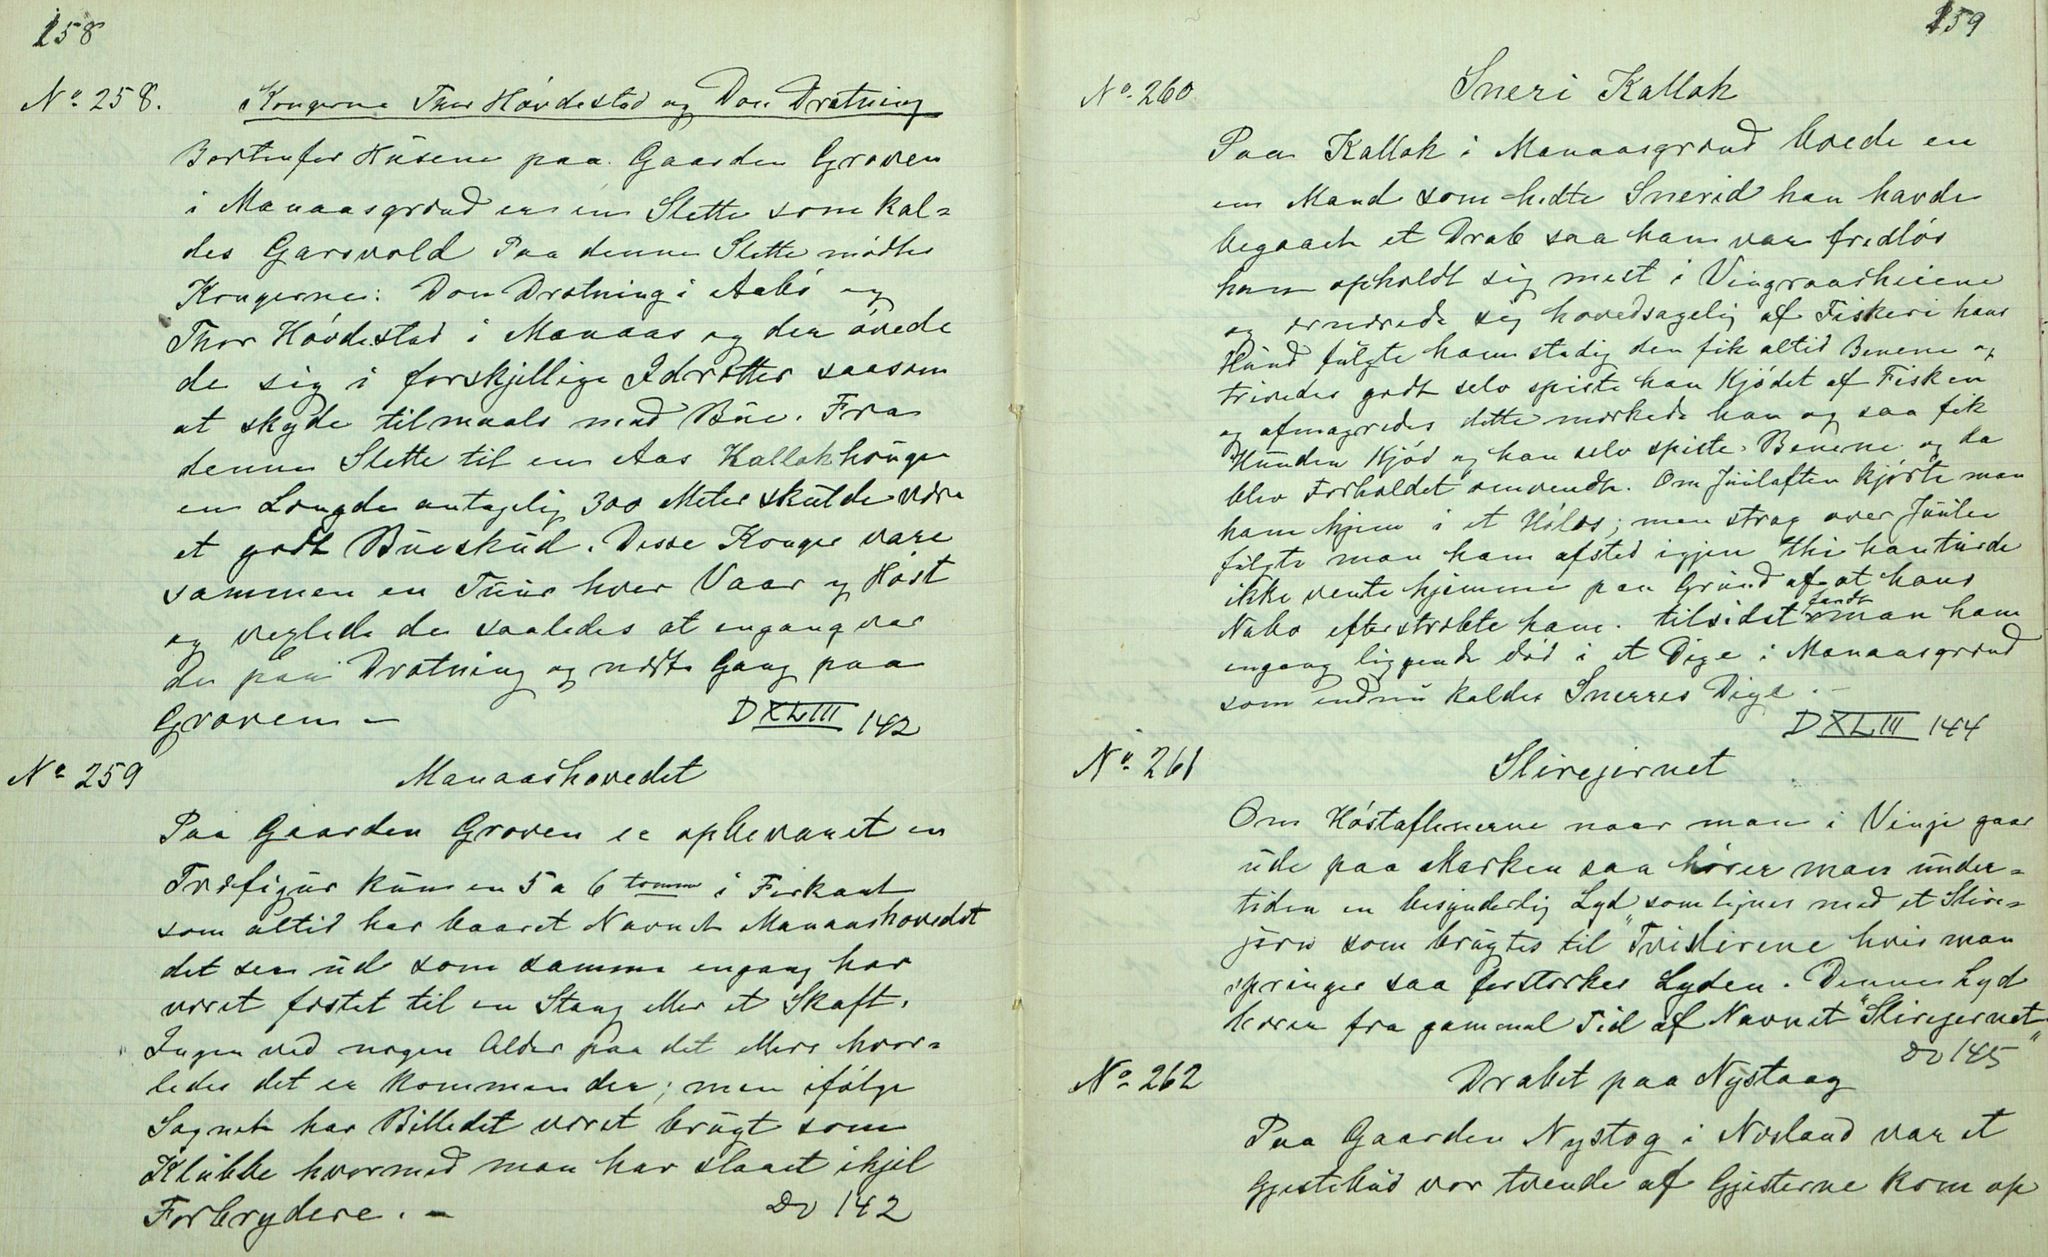 158
No 258. Kongerne Thor Hövdestad og Don Dratning
Bortenfor Husene paa Gaarden Groven
i Manaasgrænd er en Slette som kal=
des Garsvold Paa denne Slette mødtes
Kongerne: Don Dratning i Aabö og
Thor Hövdestad i Manaas og der övede
de sig i forskjellige Idrætter saasom
at skyde tilmaals med Bue. Fra
denne Slette til en Aas Kallakhougen
en Længde antagelig 300 Meter skulde være
et godt Bueskud. Disse Konger vare
sammen en Tuur hver Vaar og Höst
og vexlede de saaledes at engang var
de paa Dratning og næste Gang paa
Groven –
D XLIII 142
No 259 Manaashovedet
Paa Gaarden Groven er opbevaret en
Træfigur kun en 5 a 6 tomm i Firkant
som altid har baaret Navnet Manaashovedet
det ser ud som samme engang har
været fæstet til en Stang eller et Skaft.
Ingen ved nogen Alder paa det eller hvor=
ledes det er kommen der; men ifölge
Sagnet har Billedet været brugt som
Klubbe hvormed man har slaaet ihjel
Forbrydere. –
Do 142
159
No 260 Sneri Kallak
Paa Kallak i Manaasgrænd boede en
en Mand som hedte Snerid han havde
begaaet et Drab saa han var fredlös
han opholdt sig mest i Vingraasheiene
og ernærede sig hovedsagelig af Fiskeri hans
Hund fulgte ham stadig den fik altid Benene og
trivedes godt selv spiste han Kjödet af Fisken
og afmagredes dette mærkede han og saa fik
Hunden Kjöd og han selv spiste Benene og da
blev Forholdet omvendt. Om Juilaften kjörte man
ham hjem i et Hölæs; men strag over Juulen
fulgte man ham afsted igjen thi han turde
ikke vente hjemme paa Grund af at hans
Nabo efterstræbte ham. tilsidst fandt man ham
engang liggende död i et Dige i Manaasgrænd
som endnu kaldes Snerres Dige. –
D XLIII 144
No 261 Slirejernet
Om Höstaftenerne naar man i Vinje gaar
ude paa Marken saa hører man under=
tiden en besynderlig Lyd som ligner med et Slire=
jern som brugtes til "Træslirene hvis man
springer saa forstærkes Lyden. Denne Lyd
bærer fra gammel Tid af Navnet "Slirejernet"
Do 145
No 262 Drabet paa Nystaag
Paa Gaarden Nystog i Næsland var et
Gjestebud vor tvende af Gjesterne kom op